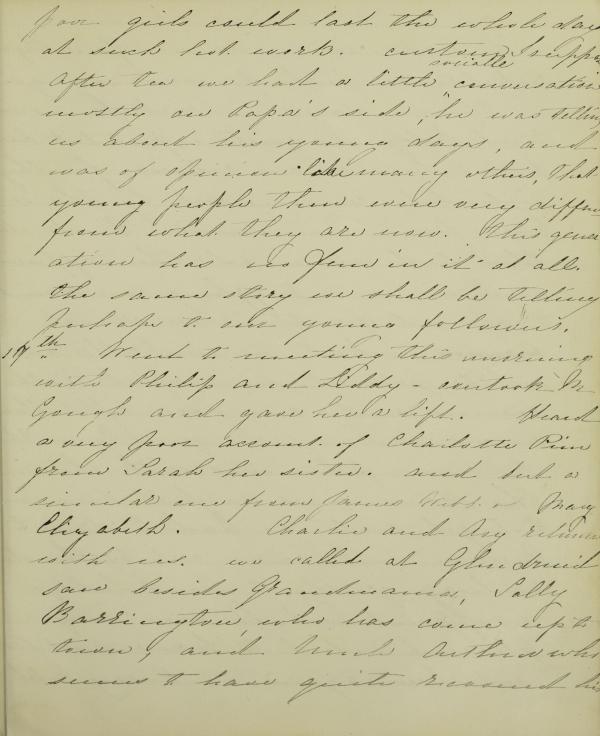 poor girls could last the whole day
at such hot work. custom I suppo
sociable
After tea we had a little conversation
mostly on Papa's side, "he was telling
us about his young days, and
was of opinion like many others, that
young people then were very differen
from what they are now. "This gener
ation has no fun in it" at all.
The same story we shall be telling
perhaps to our young followers.
17th. Went to meeting this morning
with Philip and Liddy - overtook M
Gough and gave her a lift. Heard
a very poor account of Charlotte Pim
from Sarah her sister. and but a
similar one from James Webb. Mary
Elizabeth. Charlie and Avy returned
with us. we called at Glendruid
saw besides Grandmama, Sally
Barrington, who has come up to
town, and Uncle Arthur who
seems to have quite recovered his